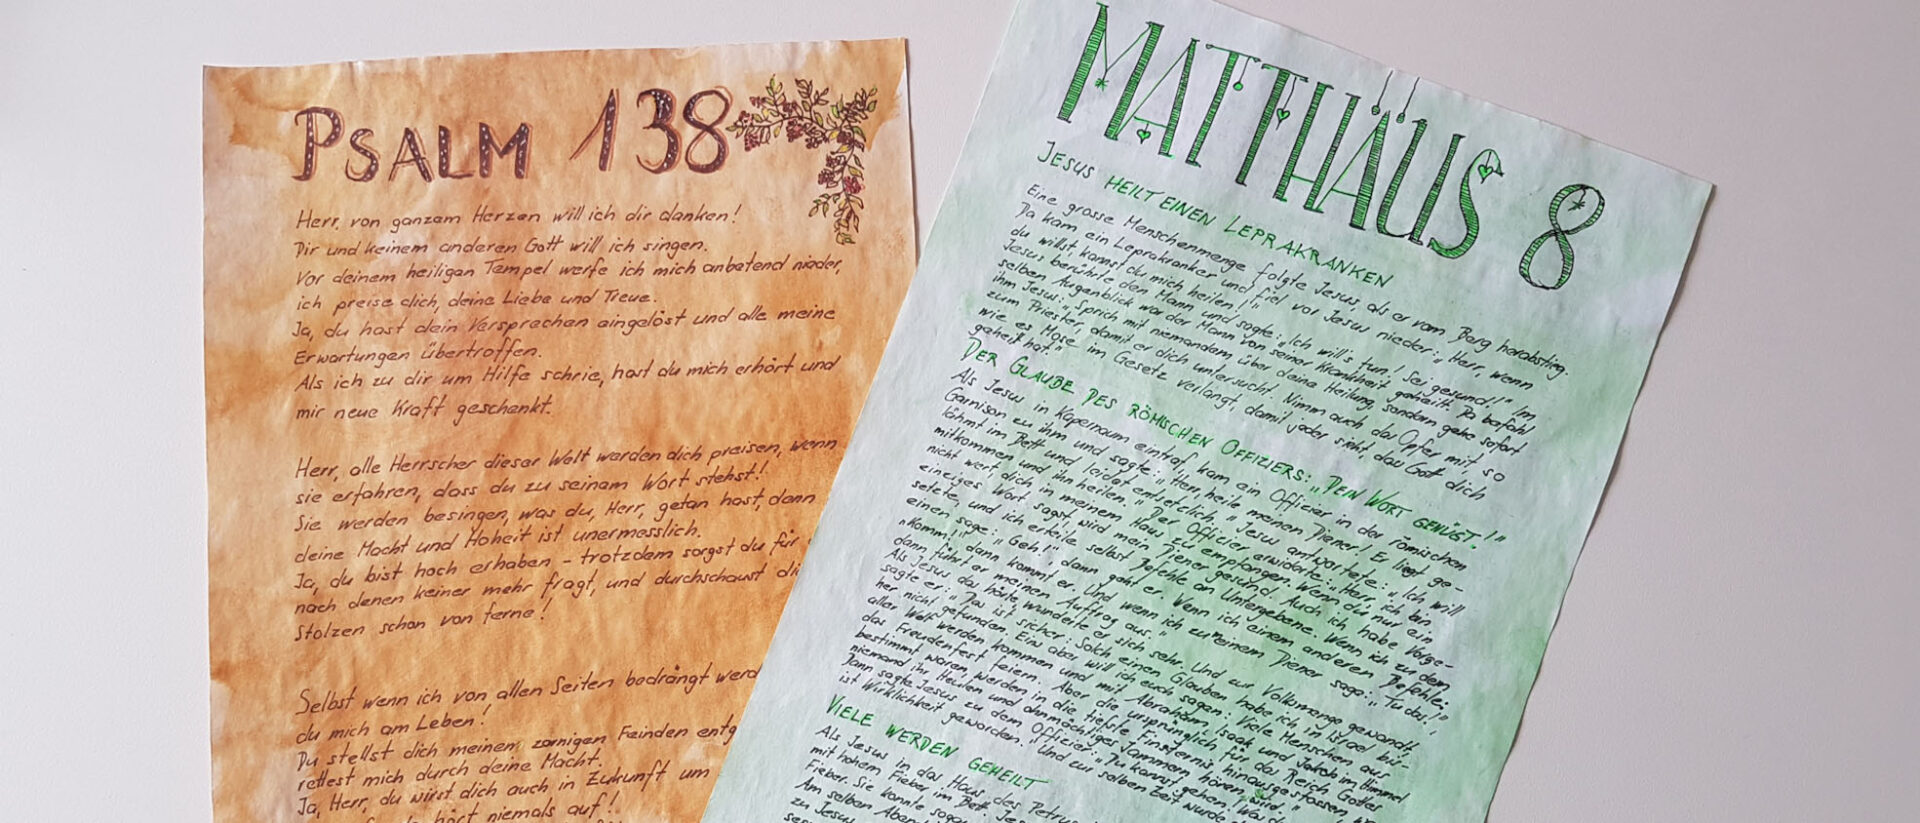 PSALM 138
Herr, von ganzem Herzen will ich dir danken!
Dir und keinem anderen Gott will ich singen.
Vor deinem heiligen Tempel werfe ich mich anbetend nieder,
ich preise dich, deine Liebe und Treue.
Ja, du hast dein Versprechen eingelöst und alle meine
Erwartungen übertroffen.
Als ich zu dir um Hilfe schrie, hast du mich erhört und
mir neue Kraft geschenkt.
Herr, alle Herrscher dieser Welt werden dich preisen, wenn
sie erfahren, dass du zu seinem Wort stehst!
Sie werden besingen, was du, Herr, getan hast, denn
deine Macht und Hoheit ist unermesslich.
Ja, du bist hoch erhaben - trotzdem sorgst du für
nach denen keiner mehr fragt, und durchschaust di
Stolzen schon von ferne!
Selbst wenn ich von allen Seiten bedrängt werd
du mich am Leben!
Du stellst dich meinem zornigen Feinden entg
rettest mich durch deine Macht.
Ja, Herr, du wirst dich auch in Zukunft um
hört niemals auf!
MATTHÄUS 8
JESUS HEILT EINEN LEPRAKRANKEN
Eine grosse Menschenmenge folgte Jesus, als er vom Berg herabstieg.
Da kam ein Leprakranker und fiel vor Jesus nieder: „Herr, wenn
du willst, kannst du mich heilen!"
Jesus berührte den Mann und sagte: „Ich will's tun! Sei gesund!" Im
selben Augenblick war der Mann von seiner Krankheit geheilt. Da befahl
ihm Jesus: „Sprich mit niemandem über deine Heilung, sondern gehe sofort
zum Priester, damit er dich untersucht. Nimm auch das Opfer mit so
wie es Mose im Gesetz verlangt, damit jeder sieht, das Gott dich
geheilt hat."
DER GLAUBE DES RÖMISCHEN OFFIZIERS: „DEIN WORT GENÜGT!"
Als Jesus in Kapernaum eintraf, kam ein Officier in der römischen
Garnison zu ihm und sagte: „Herr, heile meinen Diener! Er liegt ge-
lähmt im Bett und leidet entsetzlich." Jesus antwortete: „Ich will
mitkommen und ihn heilen." Der Officier erwiderte: „Herr, ich bin
nicht wert, dich in meinem Haus zu empfangen. Wenn du nur ein
einziges Wort sagst, wird mein Diener gesund. Auch ich habe Vorge-
setzte, und ich erteile selbst Befehle an Untergebene. Wenn ich zu dem
einen sage: „Geh!", dann geht er. Wenn ich einem anderen befehle:
„Komm!" dann kommt er. Und wenn ich zu meinem Diener sage: „Tu das!"
dann führt er meinen Auftrag aus."
Als Jesus das hörte, wunderte er sich sehr. Und zur Volksmenge gewandt
sagte er: „Das ist sicher: Solch einen Glauben habe ich in Israel bis-
her nicht gefunden. Eins aber will ich euch sagen: Viele Menschen aus
aller Welt werden kommen und mit Abraham, Isaak und Jakob im Himmel
das Freudenfest feiern. Aber die ursprünglich für das Reich Gottes
bestimmt waren, werden in die tiefste Finsternis hinausgestossen, wo
niemand ihr Heulen und ohnmächtiges Jammern hören wird."
Dann sagte Jesus zu dem Officier: „Du kannst gehen! Was
ist Wirklichkeit geworden." Und zur selben Zeit wurde
VIELE WERDEN GEHEILT
Als Jesus in das Haus des Petrus
mit hohem Fieber im Bett.
Fieber. Sie konnte sogar
Am selben Abend
zu Jesus